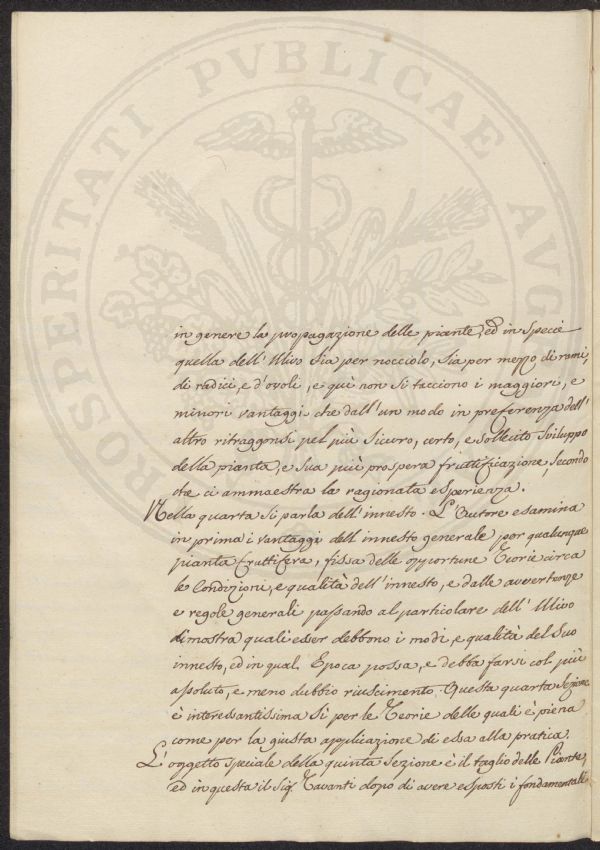 PROSPERITATI PVBLICAE AVG
in genere la propagazione delle piante, ed in specie
quella dell' Ulivo sia per nocciolo, sia per mezzo di rami,
di radici, e d'ovoli, e quì non si tacciono i maggiori, e
minori vantaggi che dall'un modo in preferenza dell'
altro ritraggonsi pel più sicuro, certo, e sollecito sviluppo
della pianta, e sua più prospera fruttificazione, secondo
che ci ammaestra la ragionata esperienza.
Nella quarta si parla dell' innesto. L'Autore esamina
in prima i vantaggi dell innesto generale per qualunque
pianta fruttifera, fissa delle opportune Teorie circa
le Condizioni, e qualità dell' innesto, e dalle avvertenze
e regole generali passando al particolare dell' Ulivo
dimostra quali esser debbono i modi, e qualità del suo
innesto, ed in qual Epoca possa, e debba farsi col più
assoluto, e meno dubbio riuscimento. Questa quarta Sezione
è interessantissima sì per le Teorie delle quali è piena
come per la giusta applicazione di essa alla pratica.
L' oggetto speciale della quinta Sezione è il taglio delle Piante,
ed in questa il Sig. Tavanti dopo di avere esposti i fondamentali